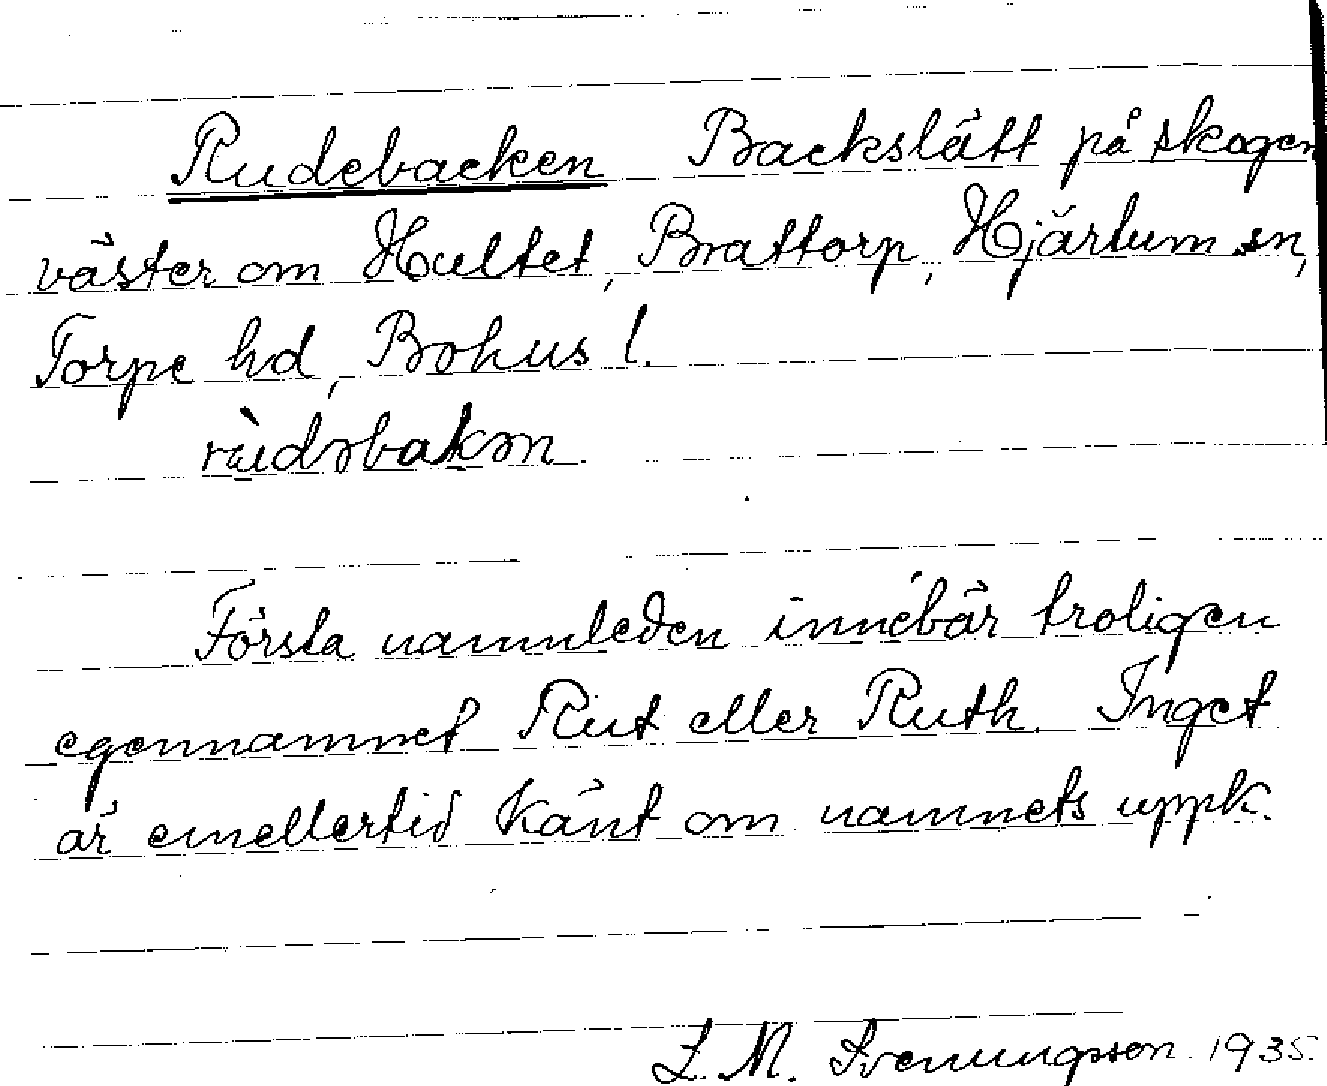 Rudebacken Backslätt på skogen
väster om Hultet, Brattorp, Hjärtum sn,
Torpe hd, Bohus l.
Första namnleden innebär troligen
egennamnet Rut eller Ruth. Inget
är emellertid känt om namnets uppk.
L. M. Svenungsson 1935.